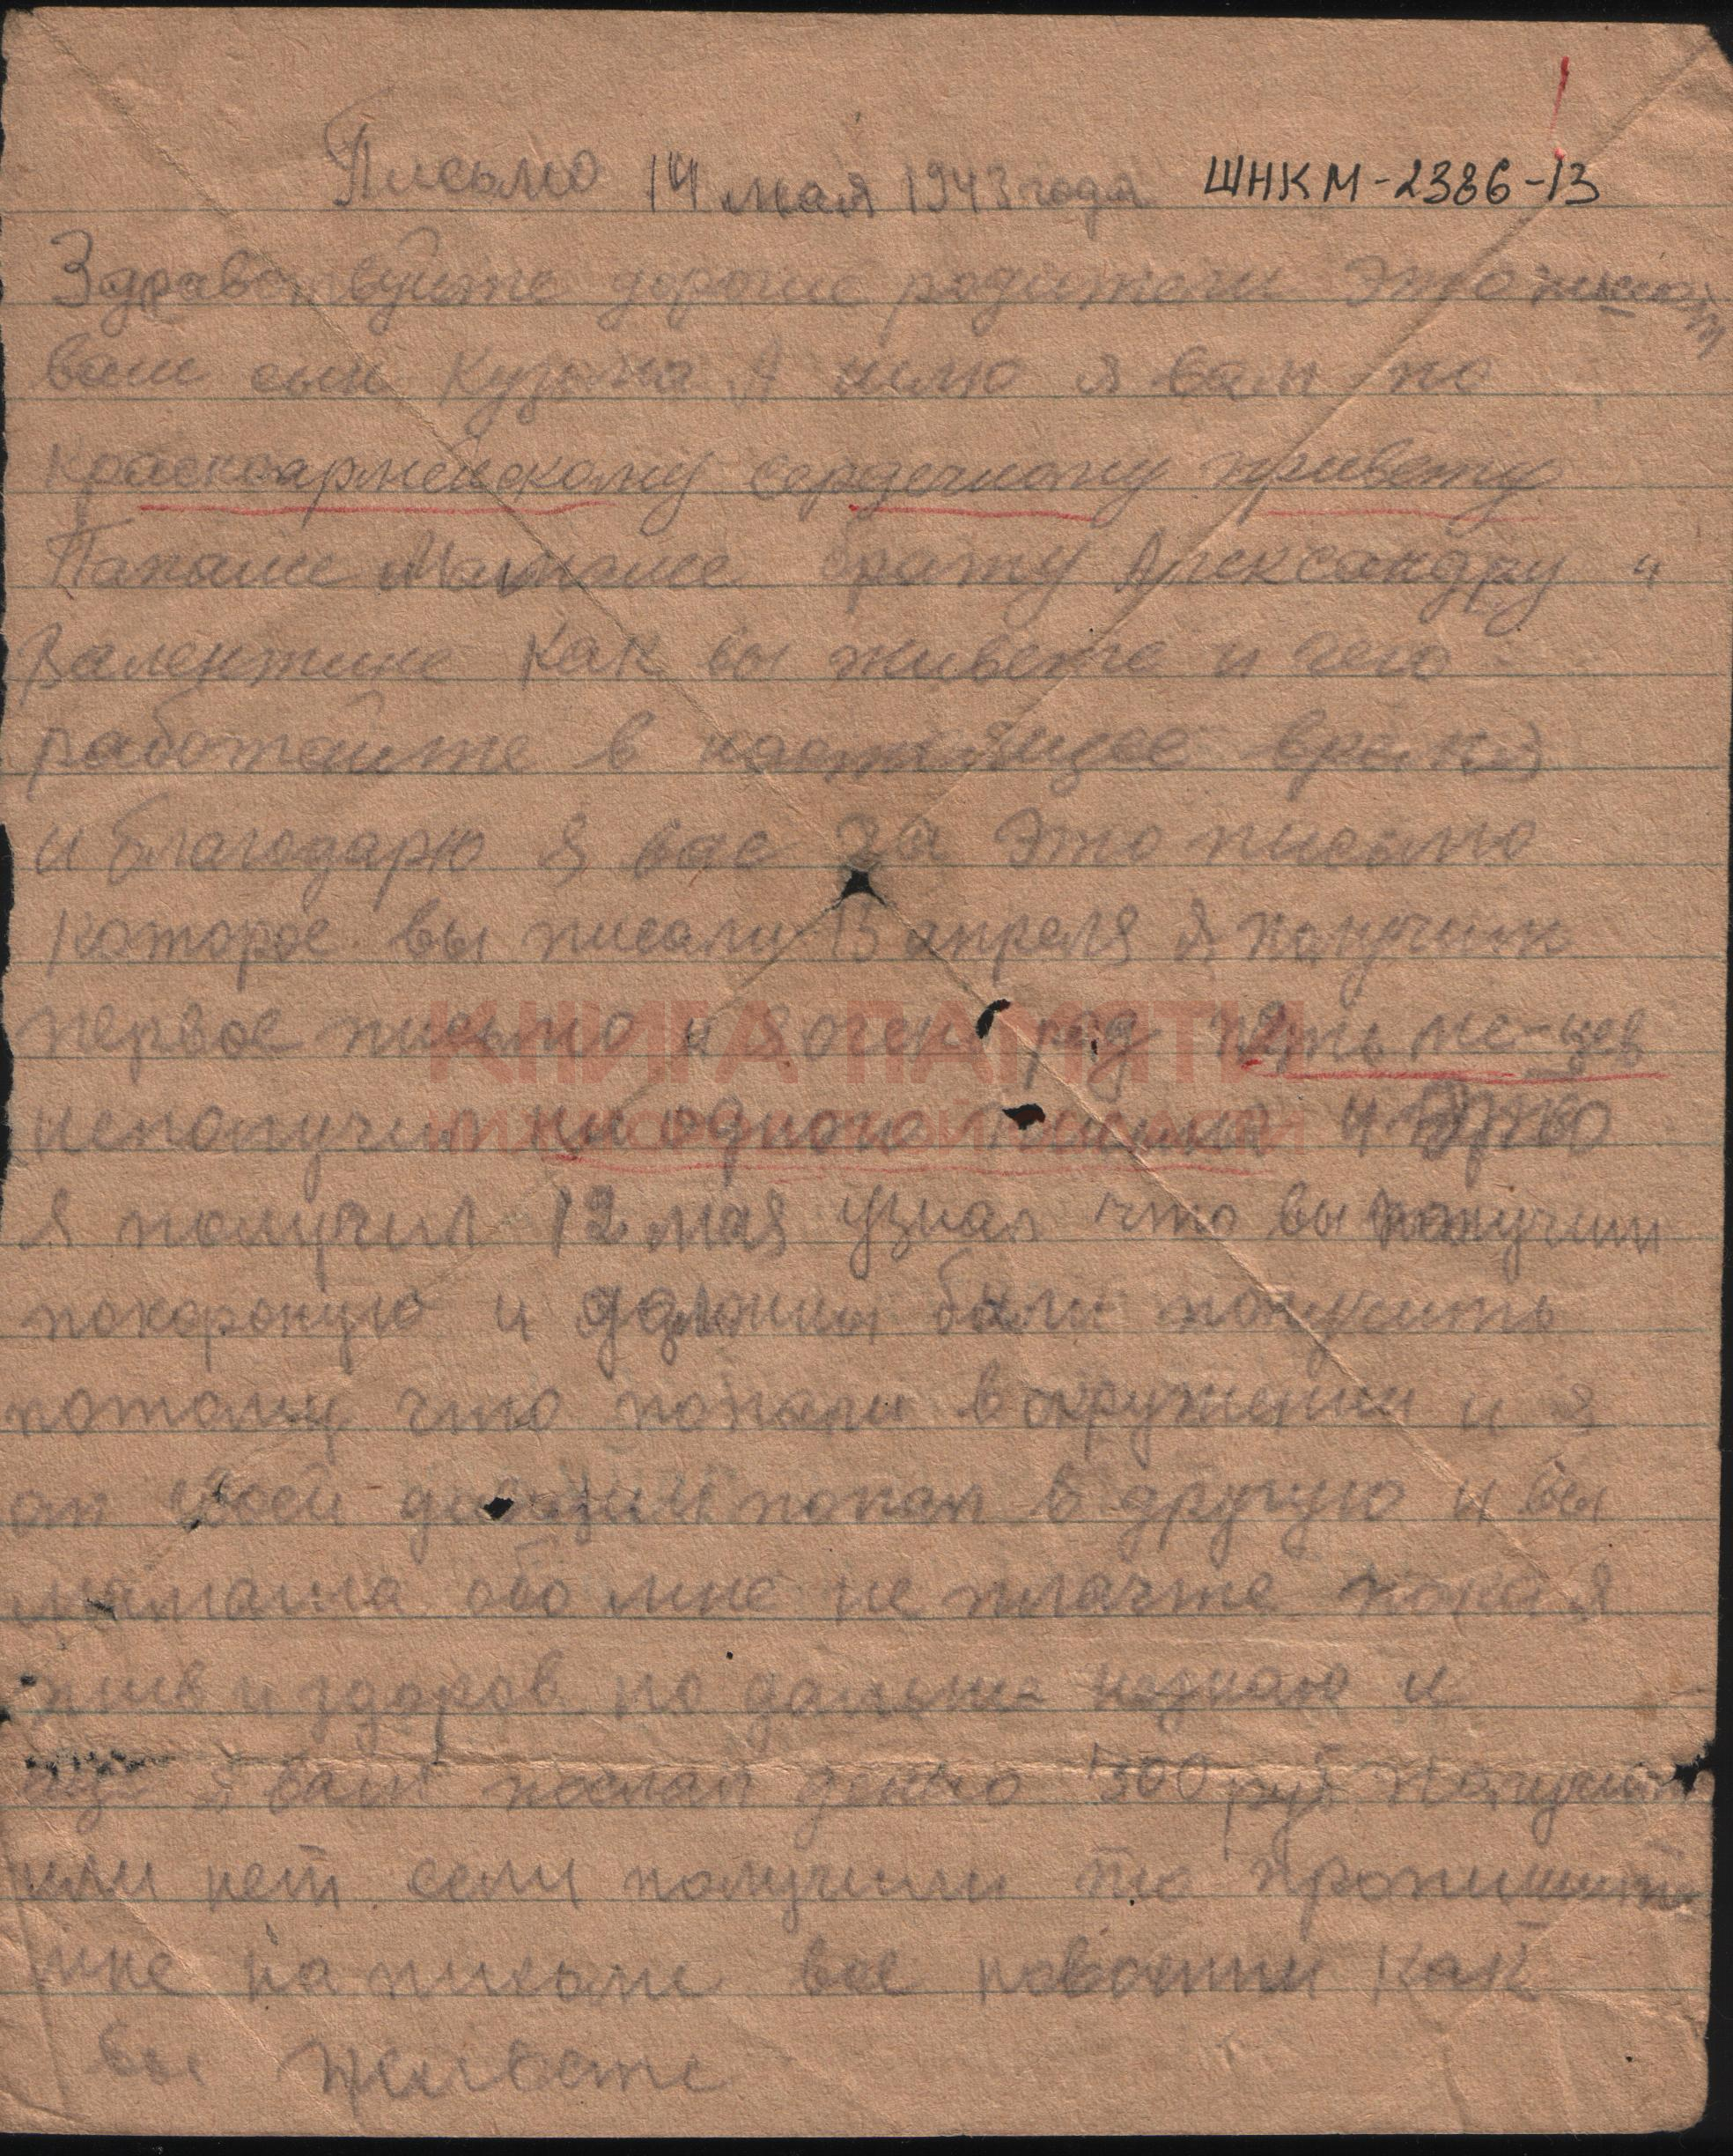 Письмо 14 мая 1943 года ШНКМ-2386-13
Здравствуйте дорогие родители это пишет
ваш сын Кузьма А шлю я вам по
красноармейскому сердечному привету
Папаше Мамаше брату Александру и
Валентине как вы живете и чего
работаите в настоящее время
и благодарю я вас за это письмо
которое вы писали 15 апреля я получил
первое письмо и я очень рад пять ме-цев
неполучил ни одного письма и это
я получил 12 мая узнал что вы получили
похороную и должны были получить
потому что попали в окружении и я
от своей дивизии попал в другую и вы
мамаша обо мне не плачте пока я
жив и здоров но дальше незнаю и
еще я вам послал денго 300 руб получили
или нет если получили то пропишите
мне на письме все новости как
вы живете
КНИГА ПАМЯТИ